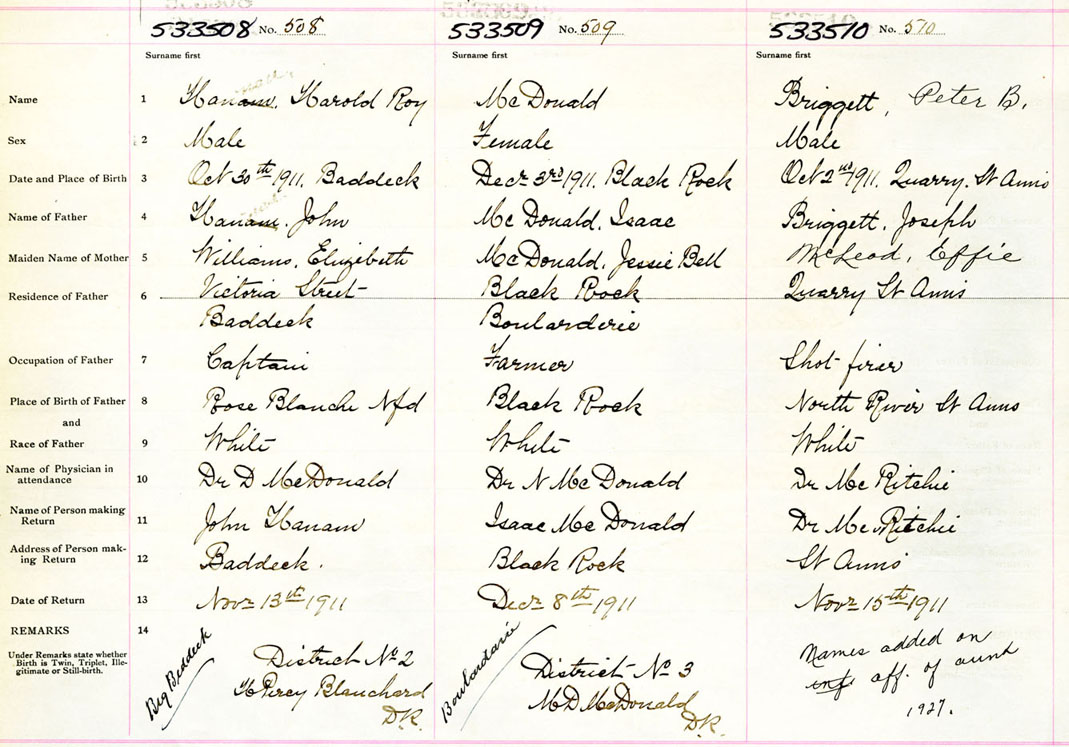 533508 No. 508 533509 No. 509 533510 No. 510
Surname first Surname first Surname first
Name 1 Hanam, Harold Roy McDonald Briggett, Peter B.
Sex 2 Male Female Male
Date and Place of Birth 3 Oct 30th 1911, Baddeck Decr 3rd 1911, Black Rock Oct 2nd 1911, Quarry, St Anns
Name of Father 4 Hanam, John McDonald, Isaac Briggett, Joseph
Maiden Name of Mother 5 Williams, Elizebeth McDonald, Jessie Bell McLeod, Effie
Residence of Father 6 Victoria Street Black Rock Quarry St Anns
Baddeck Boularderie
Occupation of Father 7 Captain Farmer Shot-firer
Place of Birth of Father 8 Rose Blanche Nfd Black Rock North River St Anns
and
Race of Father 9 White White White
Name of Physician in
attendance 10 Dr D McDonald Dr N McDonald Dr McRitchie
Name of Person making
Return 11 John Hanam Isaac McDonald Dr McRitchie
Address of Person mak-
ing Return 12 Baddeck. Black Rock St Anns
Date of Return 13 Novr 13th 1911 Decr 8th 1911 Novr 15th 1911
REMARKS 14
Under Remarks state whether
Birth is Twin, Triplet, Ille-
gitimate or Still-birth.
Big Beddeck
District No 2
H Percy Blanchard
D.R.
Boulardarie
District No 3
M D McDonald
D.R.
Names added on
inf. aff. of aunt
1927.